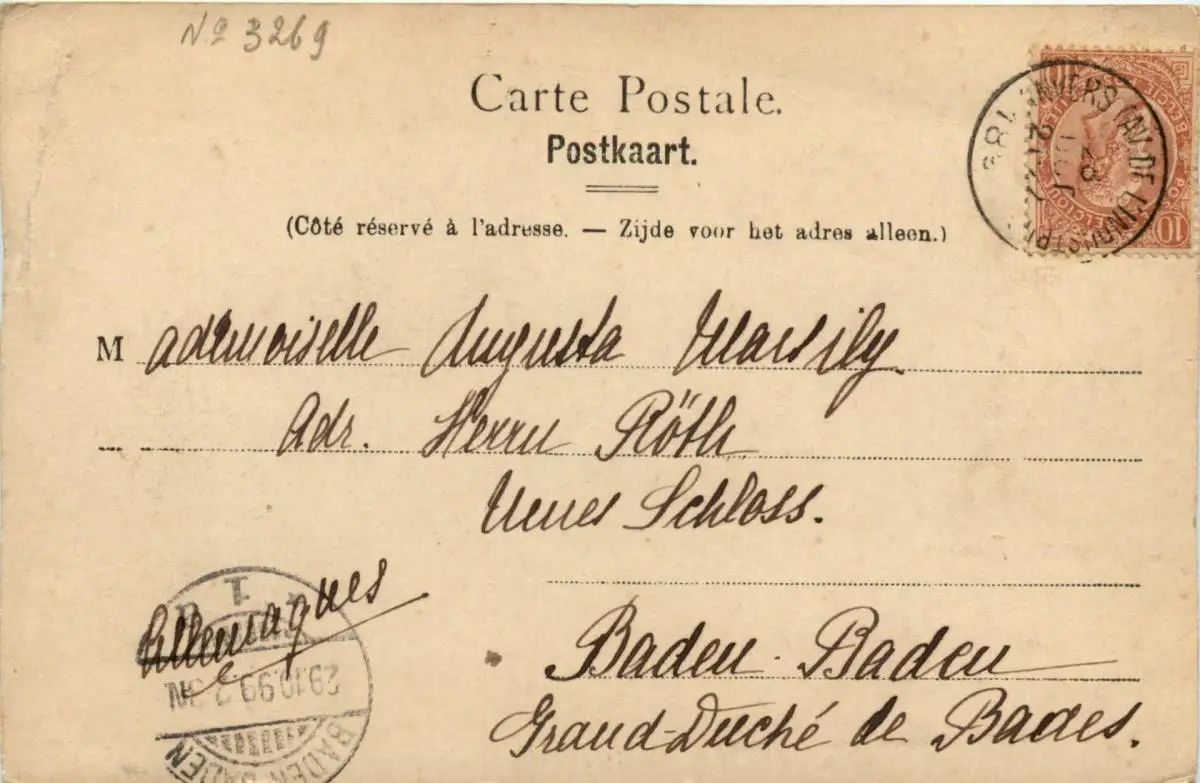 No 3269
Carte Postale.
Postkaart.
(Côté réservé à l'adresse. — Zijde voor het adres alleen.)
Mademoiselle Augusta Marsily
Adr. Herrn Röth
Neues Schloss.
Allemagnes
Baden-Baden
Grand-Duché de Bades.
ANVERS (AV. DE L'INDUSTRIE
28
10
BELGIQUE
29.10.99.2-3N.
BADEN-BADEN